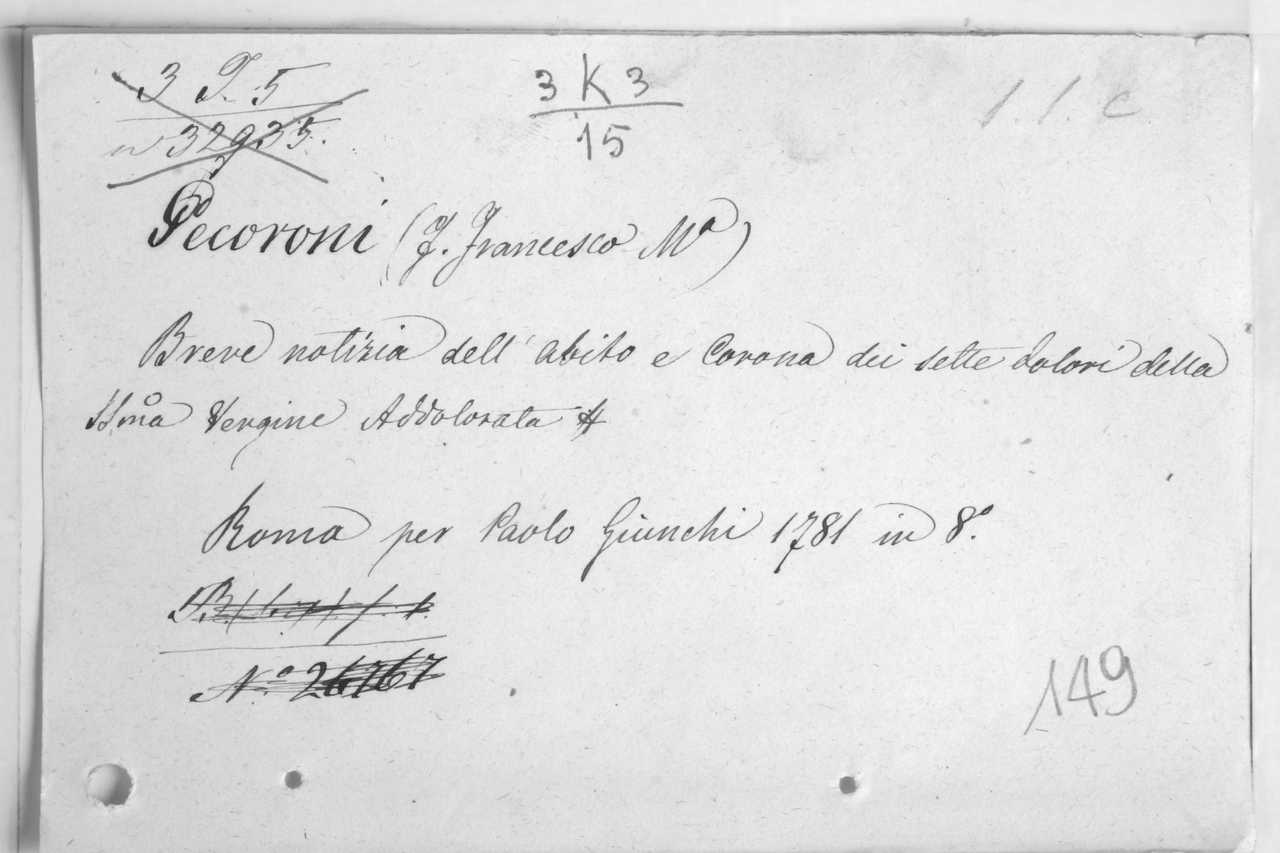 3 I. 5
3 K 3
1. 1. c
n 32935.
15
Pecoroni (F. Francesco Mª)
Breve notizia dell' abito e Corona dei sette dolori della
SSmª Vergine Addolorata
Roma per Paolo Giunchi 1781 in 8.º
N.º 26767
149